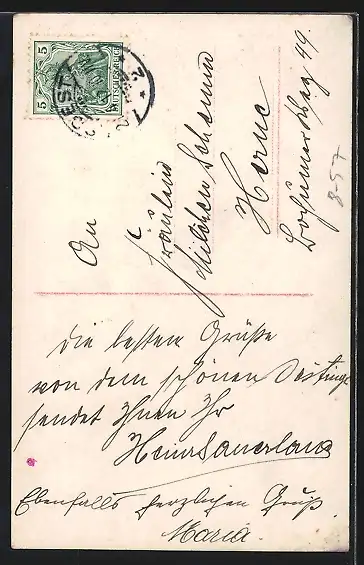 5
5
DEUTSCHES REICH
SOEST
An
Fräulein
Milchen
Herne
Bochumerstrag 49.
8-57
die besten Grüße
von dem schönen
sendet Ihnen Ihr
Heinr Sauerland
Ebenfalls herzlichen Gruß
Maria.